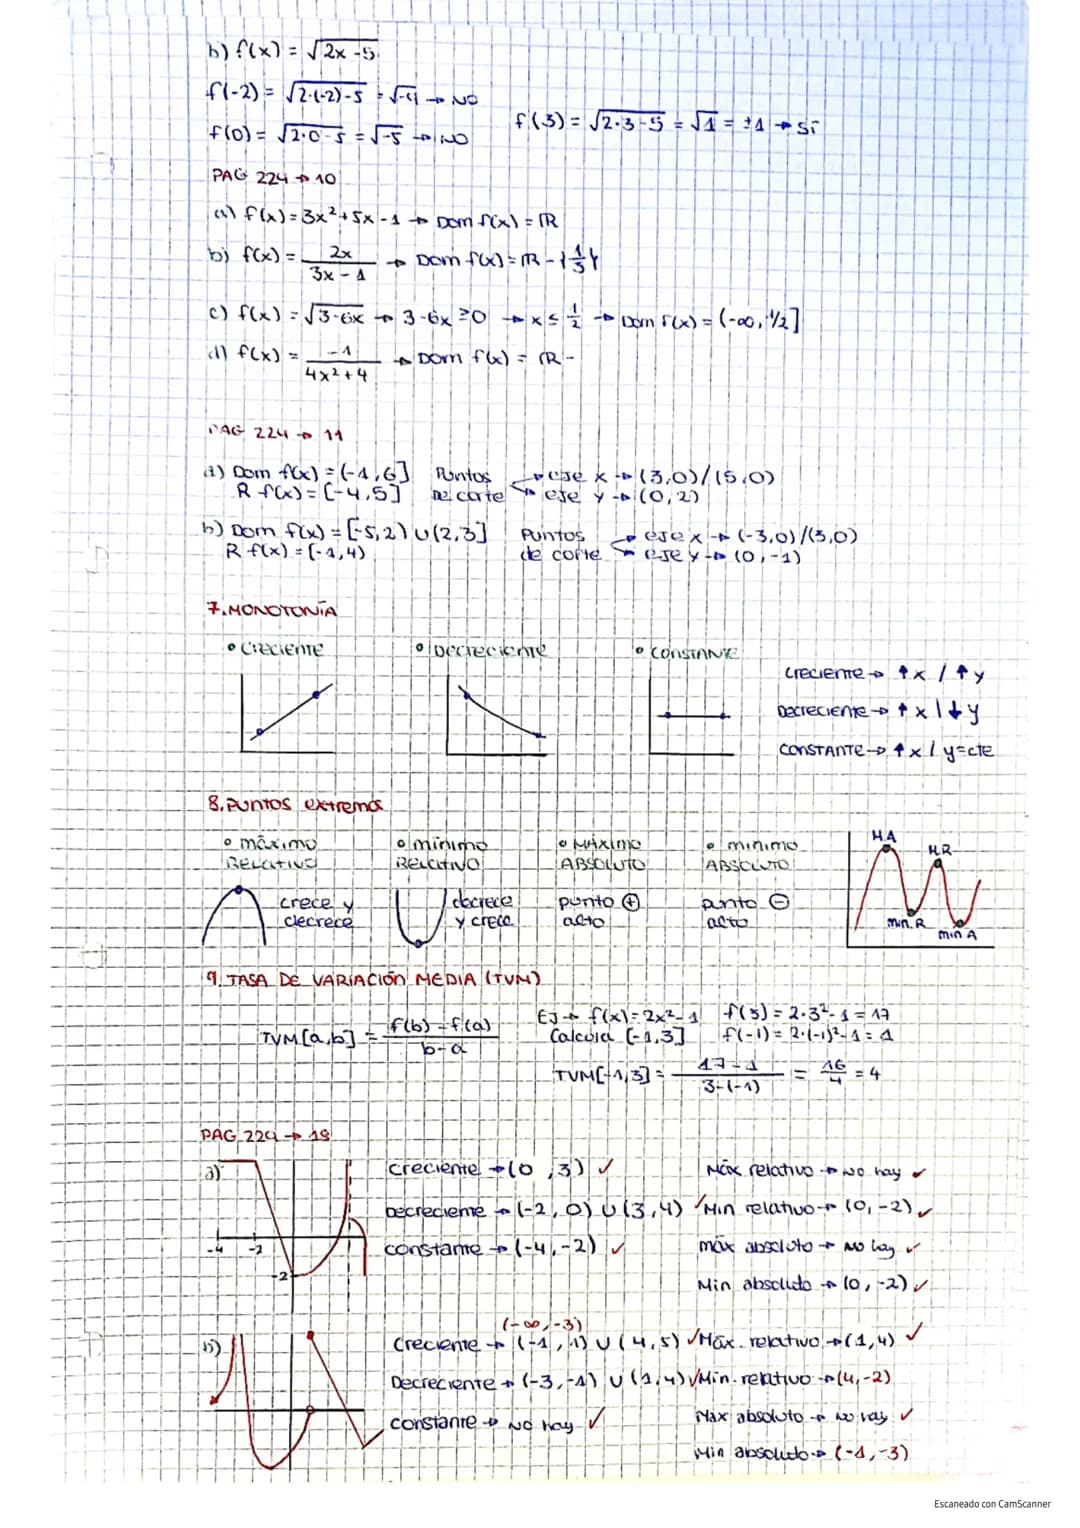 b) f(x) = √2x -5
f(-2) = √2·(-2)-5 = √-9 → NO
f(0) = √2·0-5 = √-5 → NO
f(3) = √2·3-5 = √1 = ±1 → Sí
PAG 224 → 10
a) f(x) = 3x²+5x-1 → Dom f(x) = ℝ
b) f(x) = 2x / 3x - 1 → Dom f(x) = ℝ - {1/3}
c) f(x) = √3-6x → 3-6x ≥0 → x ≤ 1/2 → Dom f(x) = (-∞, 1/2]
d) f(x) = -1 / 4x²+4 → Dom f(x) = ℝ -
PAG 224 → 11
a) Dom f(x) = (-1,6] Puntos de corte → eje x → (3,0)/(5,0)
R f(x) = [-4,5] → eje y → (0,2)
b) Dom f(x) = [-5,2) ∪ (2,3] Puntos de corte → eje x → (-3,0)/(3,0)
R f(x) = [-1,4) → eje y → (0,-1)
7. MONOTONÍA
• Creciente • Decreciente • CONSTANTE
Creciente → ↑x / ↑y
Decreciente → ↑x | ↓y
CONSTANTE → ↑x / y=cte
8. Puntos extremos
• máximo RELATIVO • mínimo RELATIVO • MÁXIMO ABSOLUTO • mínimo ABSOLUTO
crece y decrece
decrece y crece
punto ⊕ alto
punto ⊖ alto
M.A
M.R
min. R
min A
9. TASA DE VARIACIÓN MEDIA (TVM)
TVM [a,b] = f(b) - f(a) / b-a
EJ → f(x) = 2x²-1 f(3) = 2·3²-1 = 17
Calcula [-1,3] f(-1) = 2·(-1)²-1 = 1
TVM[-1,3] = 17-1 / 3-(-1) = 16/4 = 4
PAG 224 → 18
a)
-4 -2
-2
creciente → (0 ,3) ✓ Máx relativo → No hay ✓
Decreciente → (-2, 0) ∪ (3,4) ✓ Min relativo → (0, -2) ✓
constante → (-4,-2) ✓ máx absoluto → No hay ✓
Min absoluto → (0, -2) ✓
b)
(-∞,-3)
Creciente → (-1, 1) ∪ (4,5) ✓ Máx. relativo → (1,4) ✓
Decreciente → (-3,-1) ∪ (1,4) ✓ Min. relativo → (4,-2)
constante → No hay ✓ Max absoluto → No hay ✓
Min absoluto → (-1,-3)
Escaneado con CamScanner